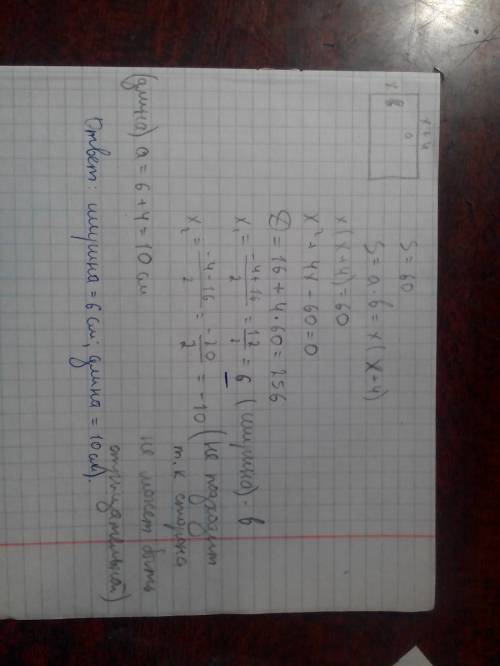 x+4
a
x
b
S=60
S=a·b=x(x+4)
x(x+4)=60
x²+4x-60=0
D=16+4·60=256
x₁=(-4+16)/2=12/2=6 (ширина)-b
x₂=(-4-16)/2=-20/2=-10 (не подходит
т.к сторона
не может быть
отрицательной)
(длина) a=6+4=10 см
Ответ: ширина=6см; длина=10см).